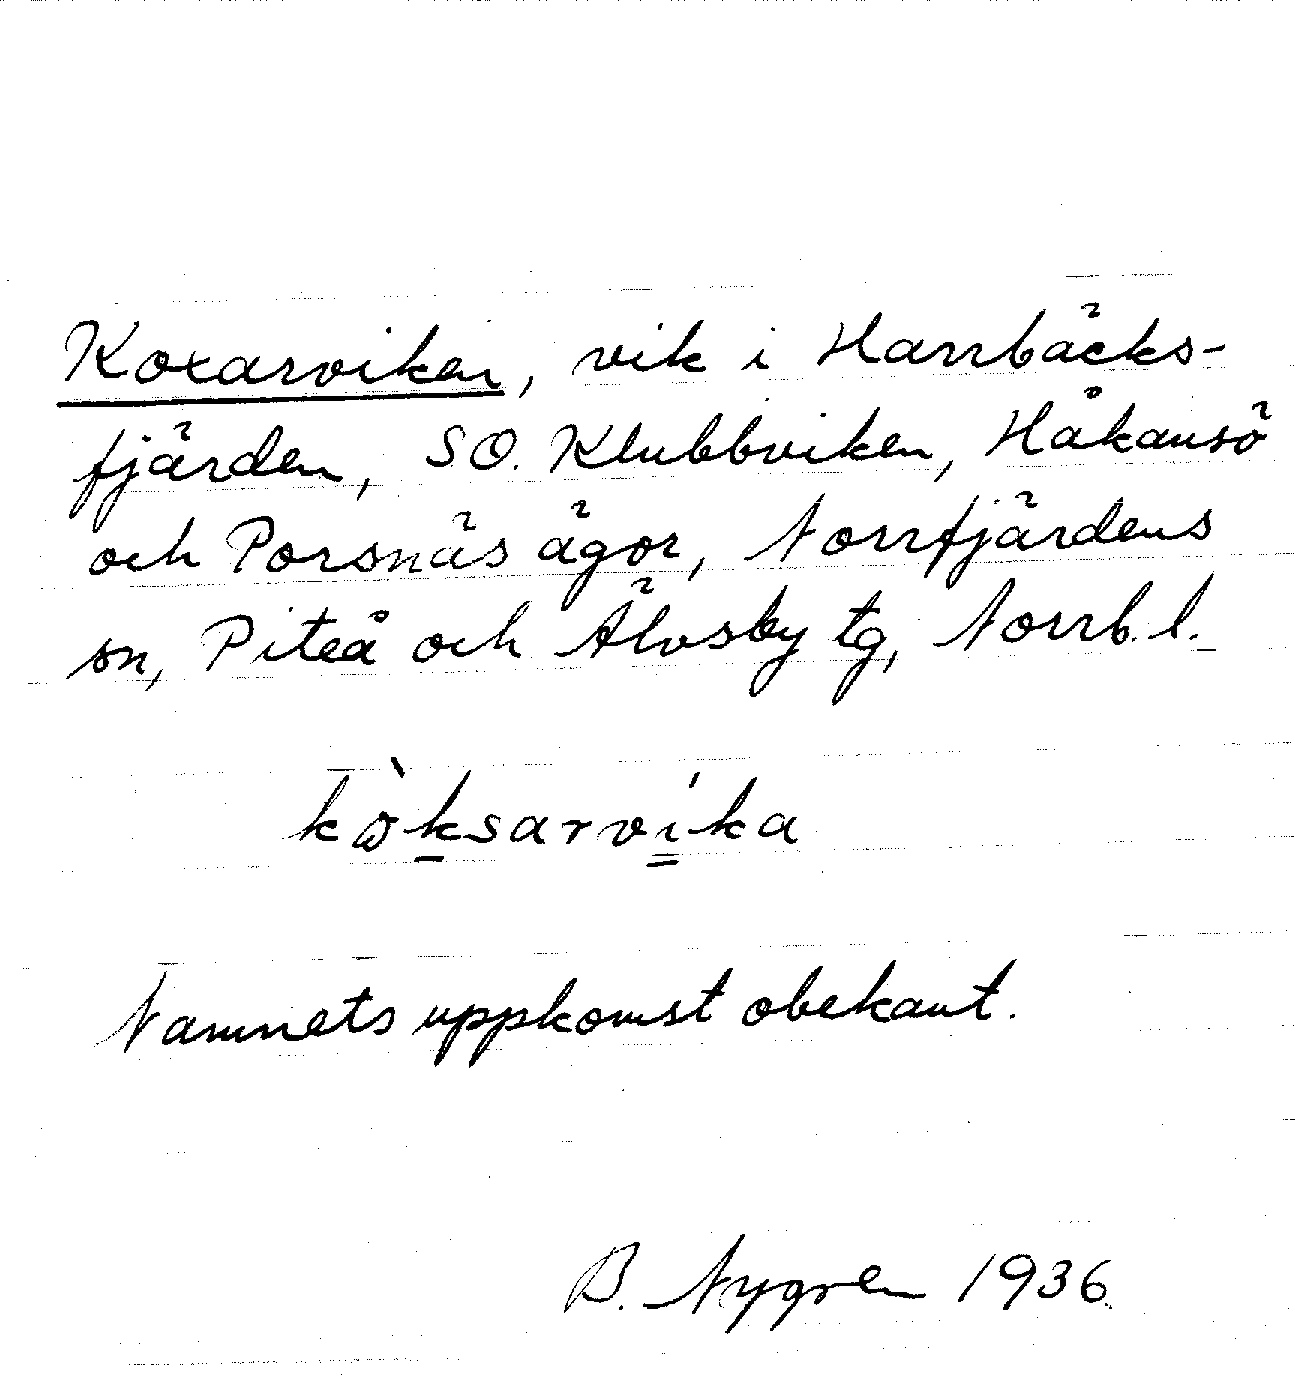 Koxarviken, vik i Harrbäcks-
fjärden, SO. Klubbviken, Håkansö
och Porsnäs ägor, Norrfjärdens
sn, Piteå och Älvsby tg, Norrb. l.
kòksarvíka
Namnets uppkomst obekant.
B. Nygren 1936.